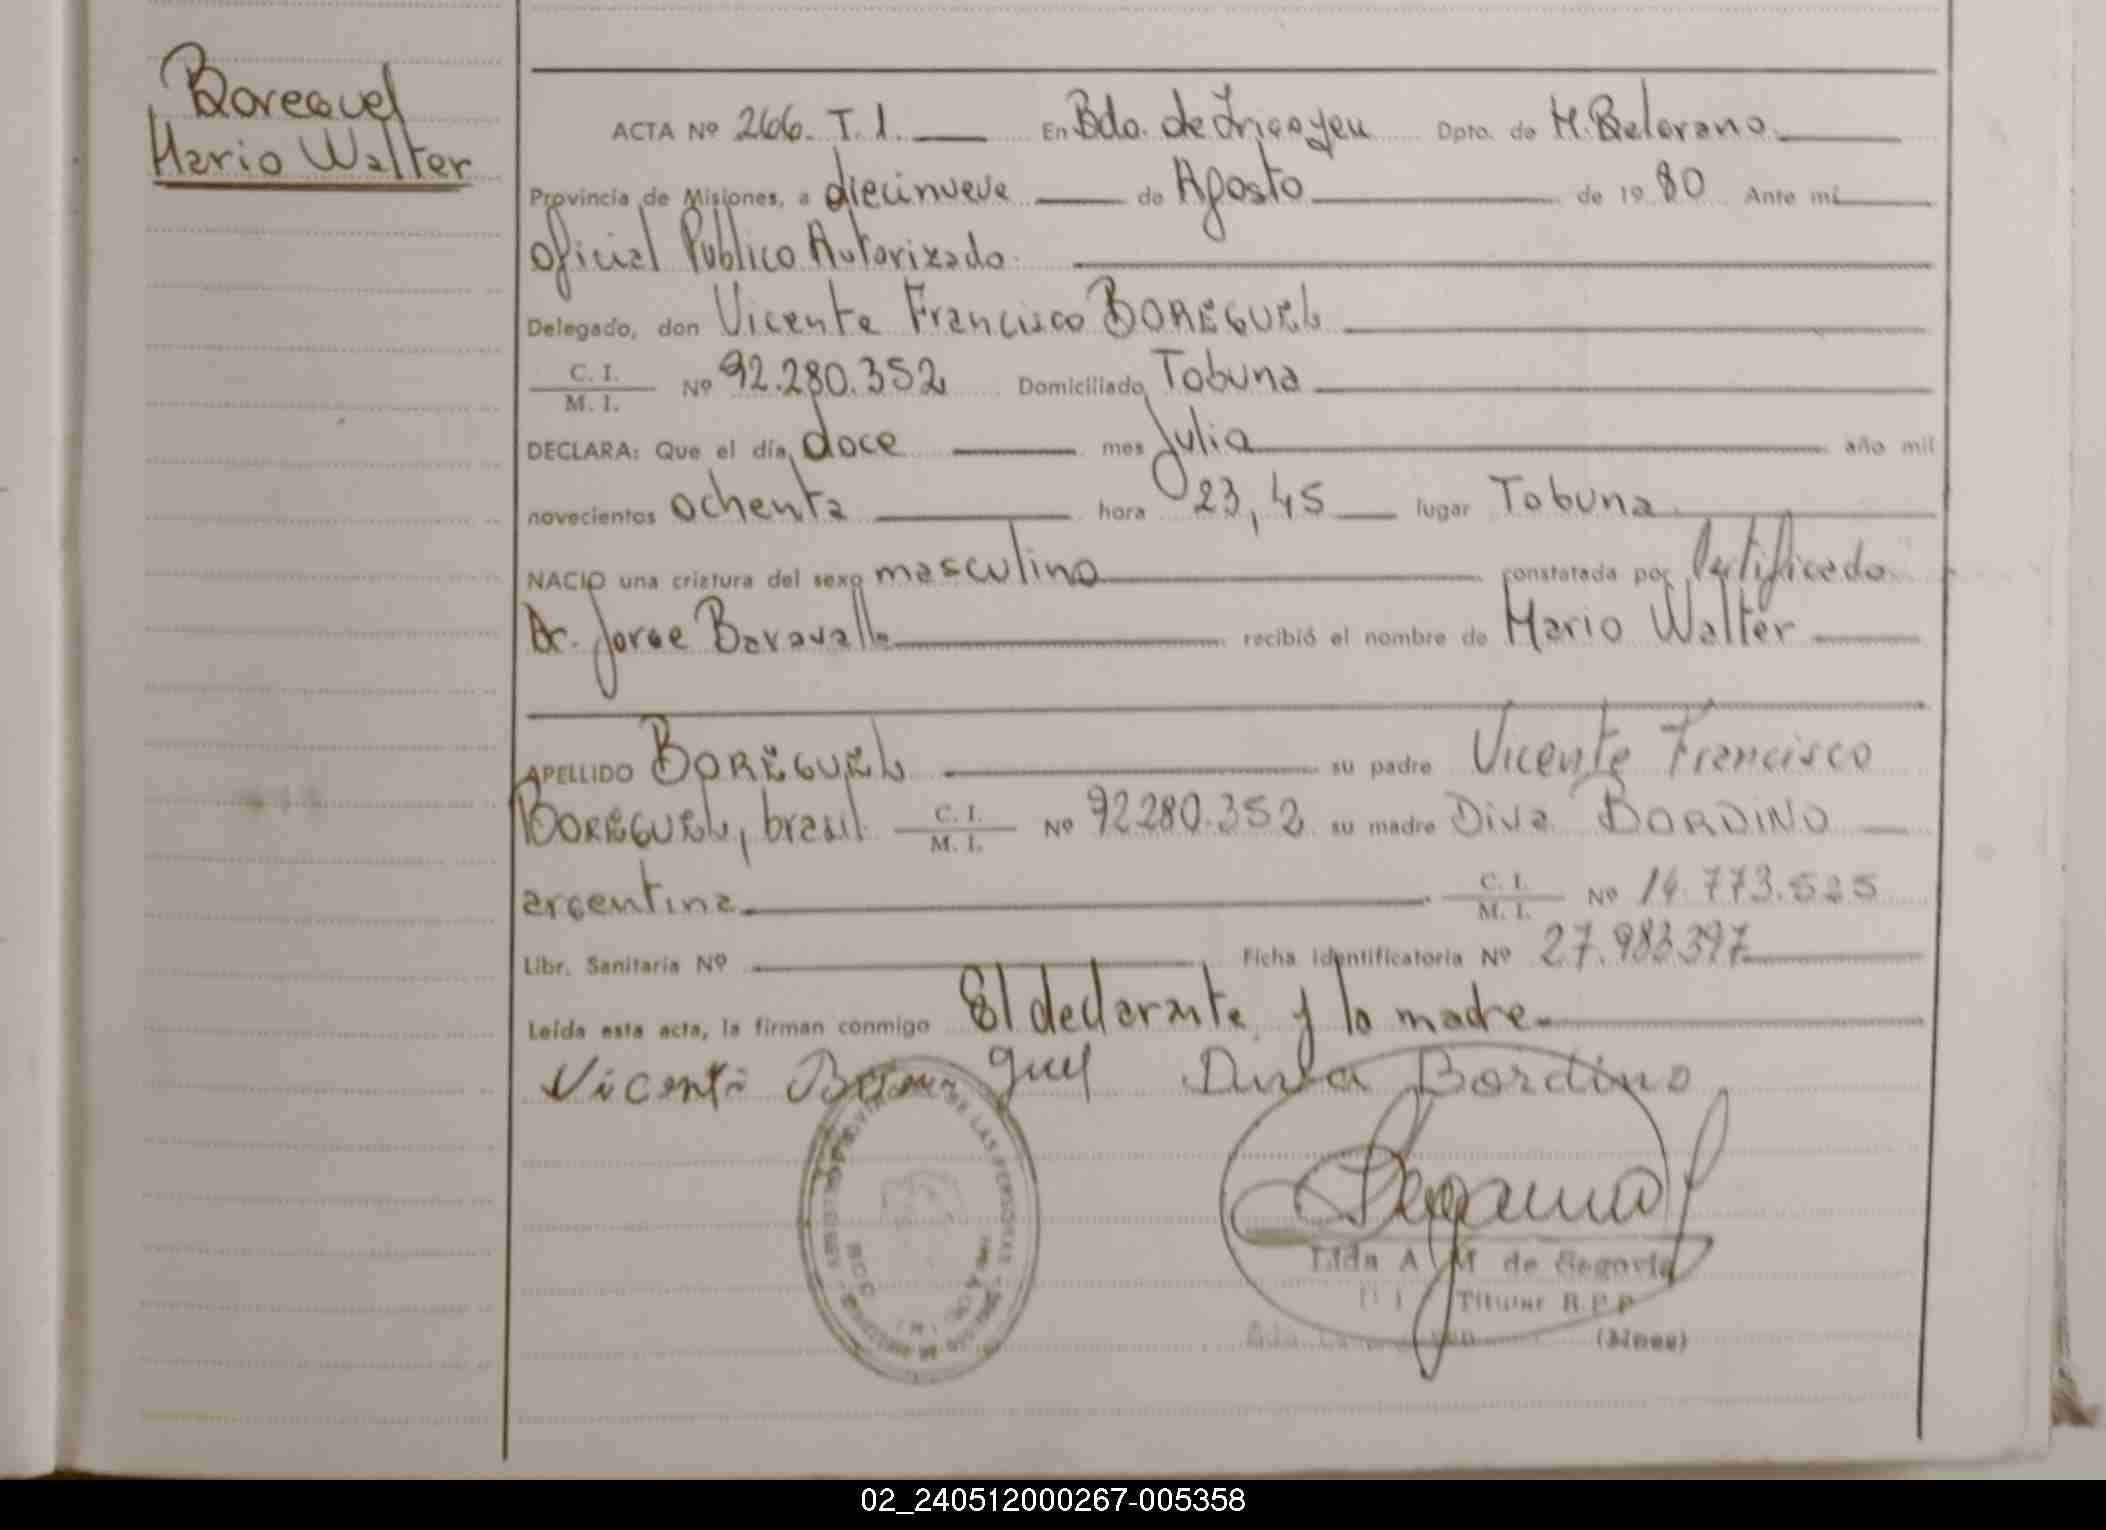 Boreguel
Mario Walter
ACTA Nº 266. T. 1. En Bdo. de Irigoyen Dpto. de M. Belgrano
Provincia de Misiones, a diecinueve de Agosto de 1980 Ante mí
Oficial Publico Autorizado.
Delegado, don Vicente Francisco BOREGUEL
C. I.
M. I. Nº 92.280.352 Domiciliado Tobuna
DECLARA: Que el día doce mes Julio año mil
novecientos ochenta hora 23,45 lugar Tobuna
NACIO una criatura del sexo masculino constatada por Certificado
Dr. Jorge recibió el nombre de Mario Walter
APELLIDO BOREGUEL su padre Vicente Francisco
BOREGUEL, brasil. C. I.
M. I. Nº 92280.352 su madre Diva BORDINO
argentina C. I.
M. I. Nº 14.773.525
Libr. Sanitaria Nº Ficha identificatoria Nº 27.983.397
Leída esta acta, la firman conmigo El declarante y la madre
Vicente Boreguel Diva Bordino
DE LAS PERSONAS
A M de Segovia
Titular R.P.P
(Mnes)
02_240512000267-005358